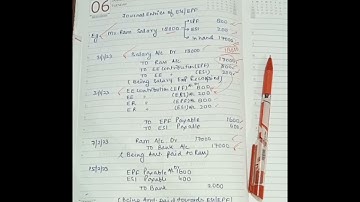 06
Journal Entries of ESI/EPF
EPF 800
eg: Mr Ram Salary 18000 ESI 200
in hand 17000
31/1/23 Salary A/c Dr 18000
To Ram A/c 17000
To EE Contribution (EPF) 800
To EE " (ESI) 200
(Being Salary Exp
31/1/23 EE Contribution (EPF) A/c 800
EE " (ESI) A/c 200
ER " (EPF) A/c 800
ER " (ESI) A/c 200
To EPF Payable 1600
To ESI Payable 400
7/2/23 Ram A/c Dr 17000
To Bank A/c 17000
(Being Amt. paid to Ram)
15/2/23 EPF Payable A/c Dr 1600
ESI Payable 400
To Bank 2000
(Being Amt paid towards ESI/EPF)